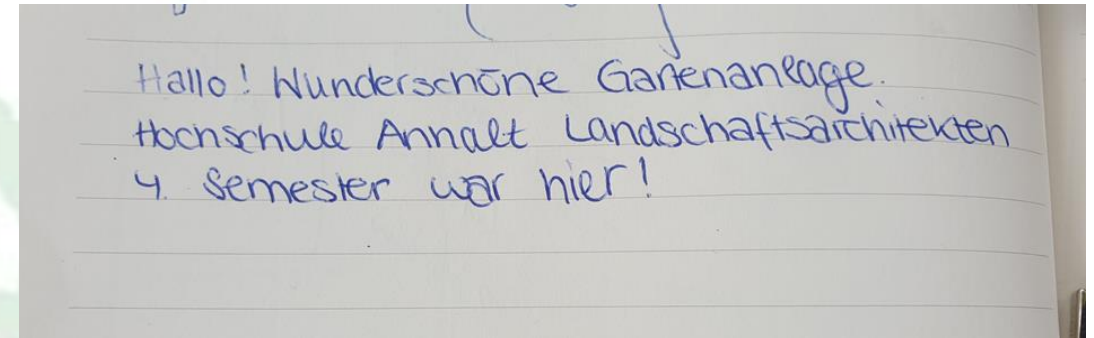 Hallo! Wunderschöne Gartenanlage.
Hochschule Anhalt Landschaftsarchitekten
4. Semester war hier!